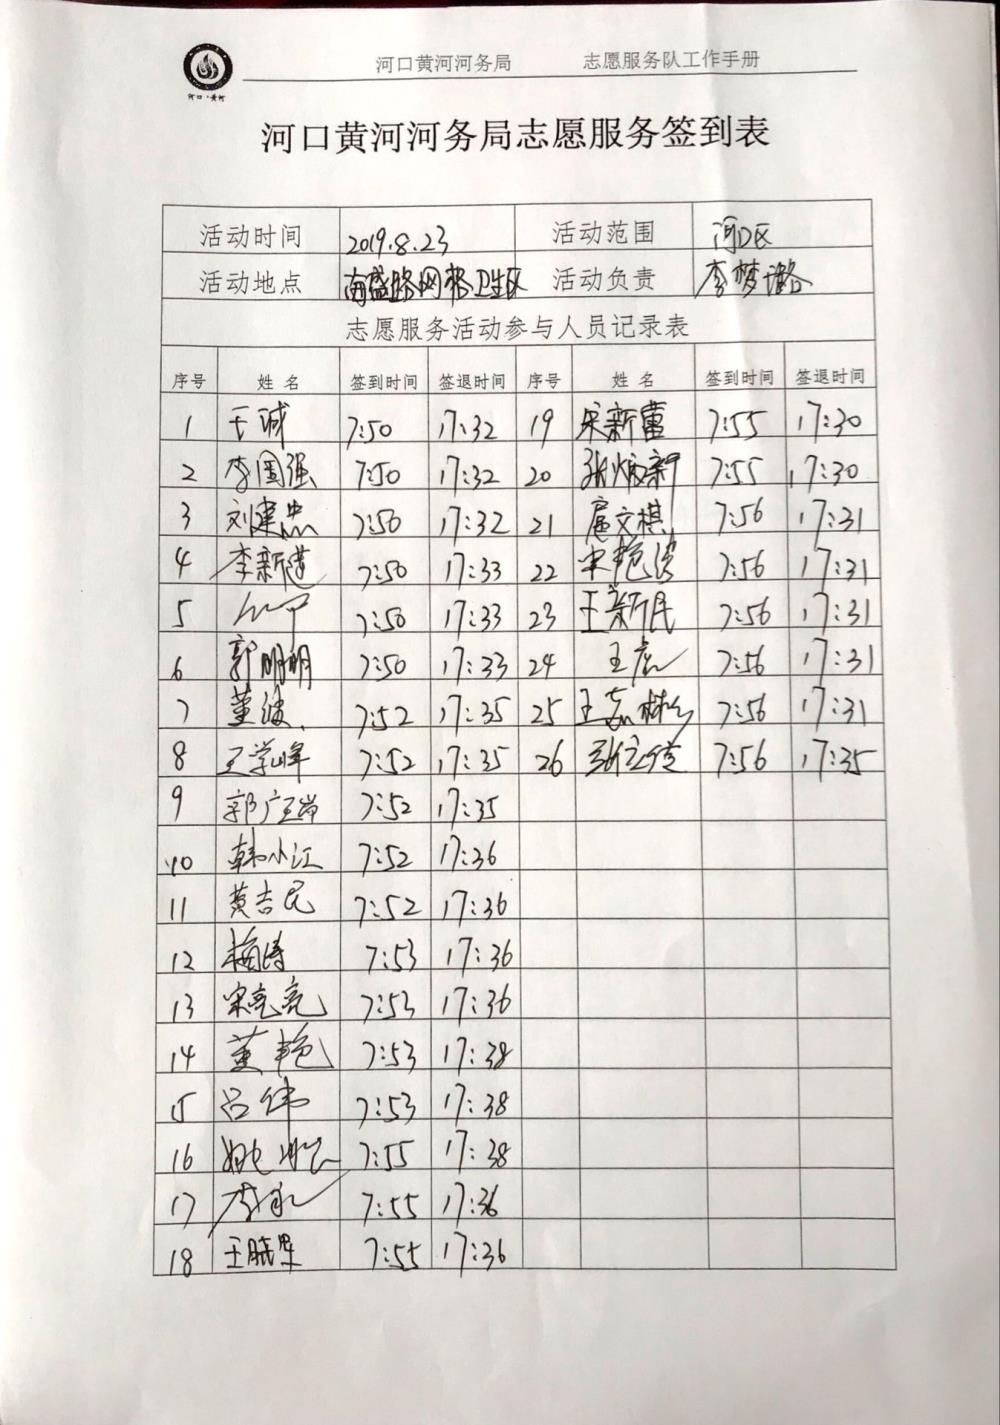 河口黄河河务局 志愿服务队工作手册
河口·黄河
河口黄河河务局志愿服务签到表
活动时间 2019.8.23 活动范围 河口区
活动地点 南盛路网格卫生区 活动负责 李梦璐
志愿服务活动参与人员记录表
序号 姓名 签到时间 签退时间 序号 姓名 签到时间 签退时间
1 王诚 7:50 17:32 19 宋新蕾 7:55 17:30
2 李国强 7:50 17:32 20 张炳新 7:55 17:30
3 刘建忠 7:50 17:32 21 扈文棋 7:56 17:31
4 李新建 7:50 17:33 22 宋艳滨 7:56 17:31
5 7:50 17:33 23 王新民 7:56 17:31
6 郭明明 7:50 17:33 24 王虎 7:56 17:31
7 董波 7:52 17:35 25 王志彬 7:56 17:31
8 王学峰 7:52 17:35 26 7:56 17:35
9 郭广瑞 7:52 17:35
10 韩小江 7:52 17:36
11 黄吉民 7:52 17:36
12 梅涛 7:53 17:36
13 宋亮亮 7:53 17:36
14 董艳 7:53 17:38
15 吕伟 7:53 17:38
16 7:55 17:38
17 7:55 17:36
18 王晓军 7:55 17:36